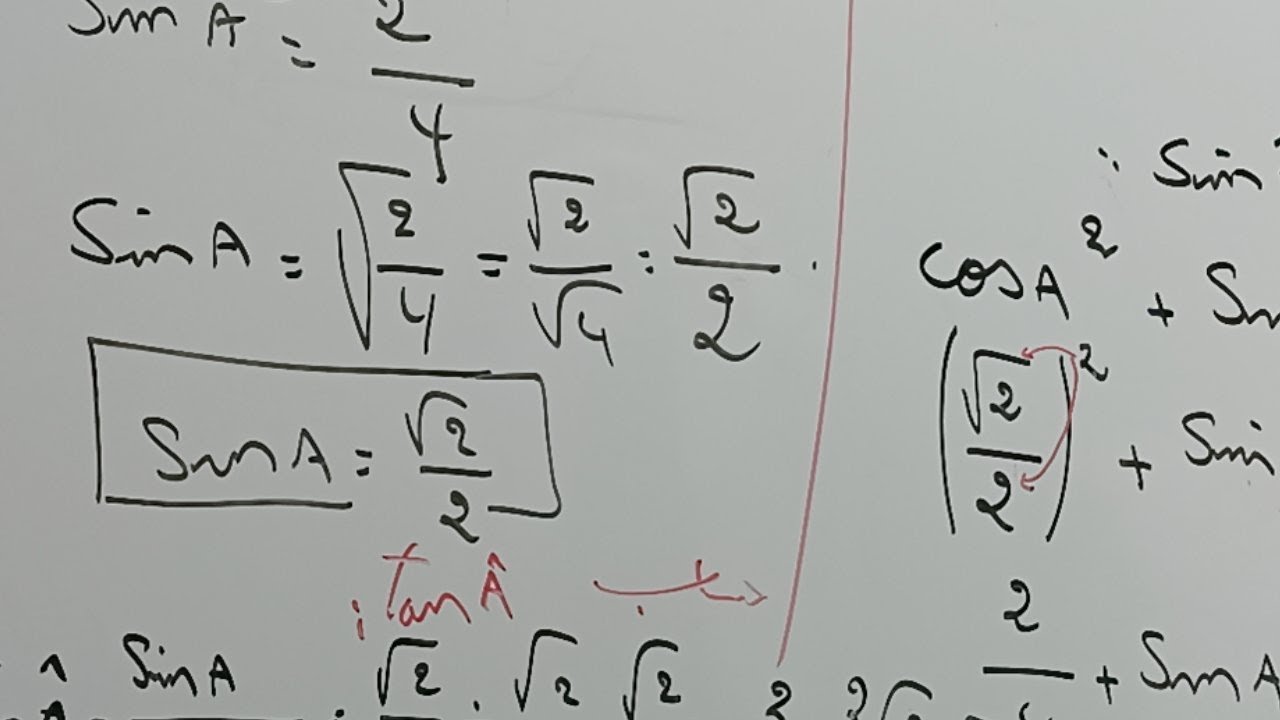 Sin A = 2/4
Sin A = √(2/4) = √2/√4 = √2/2 .
Sin A = √2/2
حساب tan Â :
Sin A √2 . √2 √2
: Sin
cos A² + Sin
(√2/2)² + Sin
2/4 + Sin A